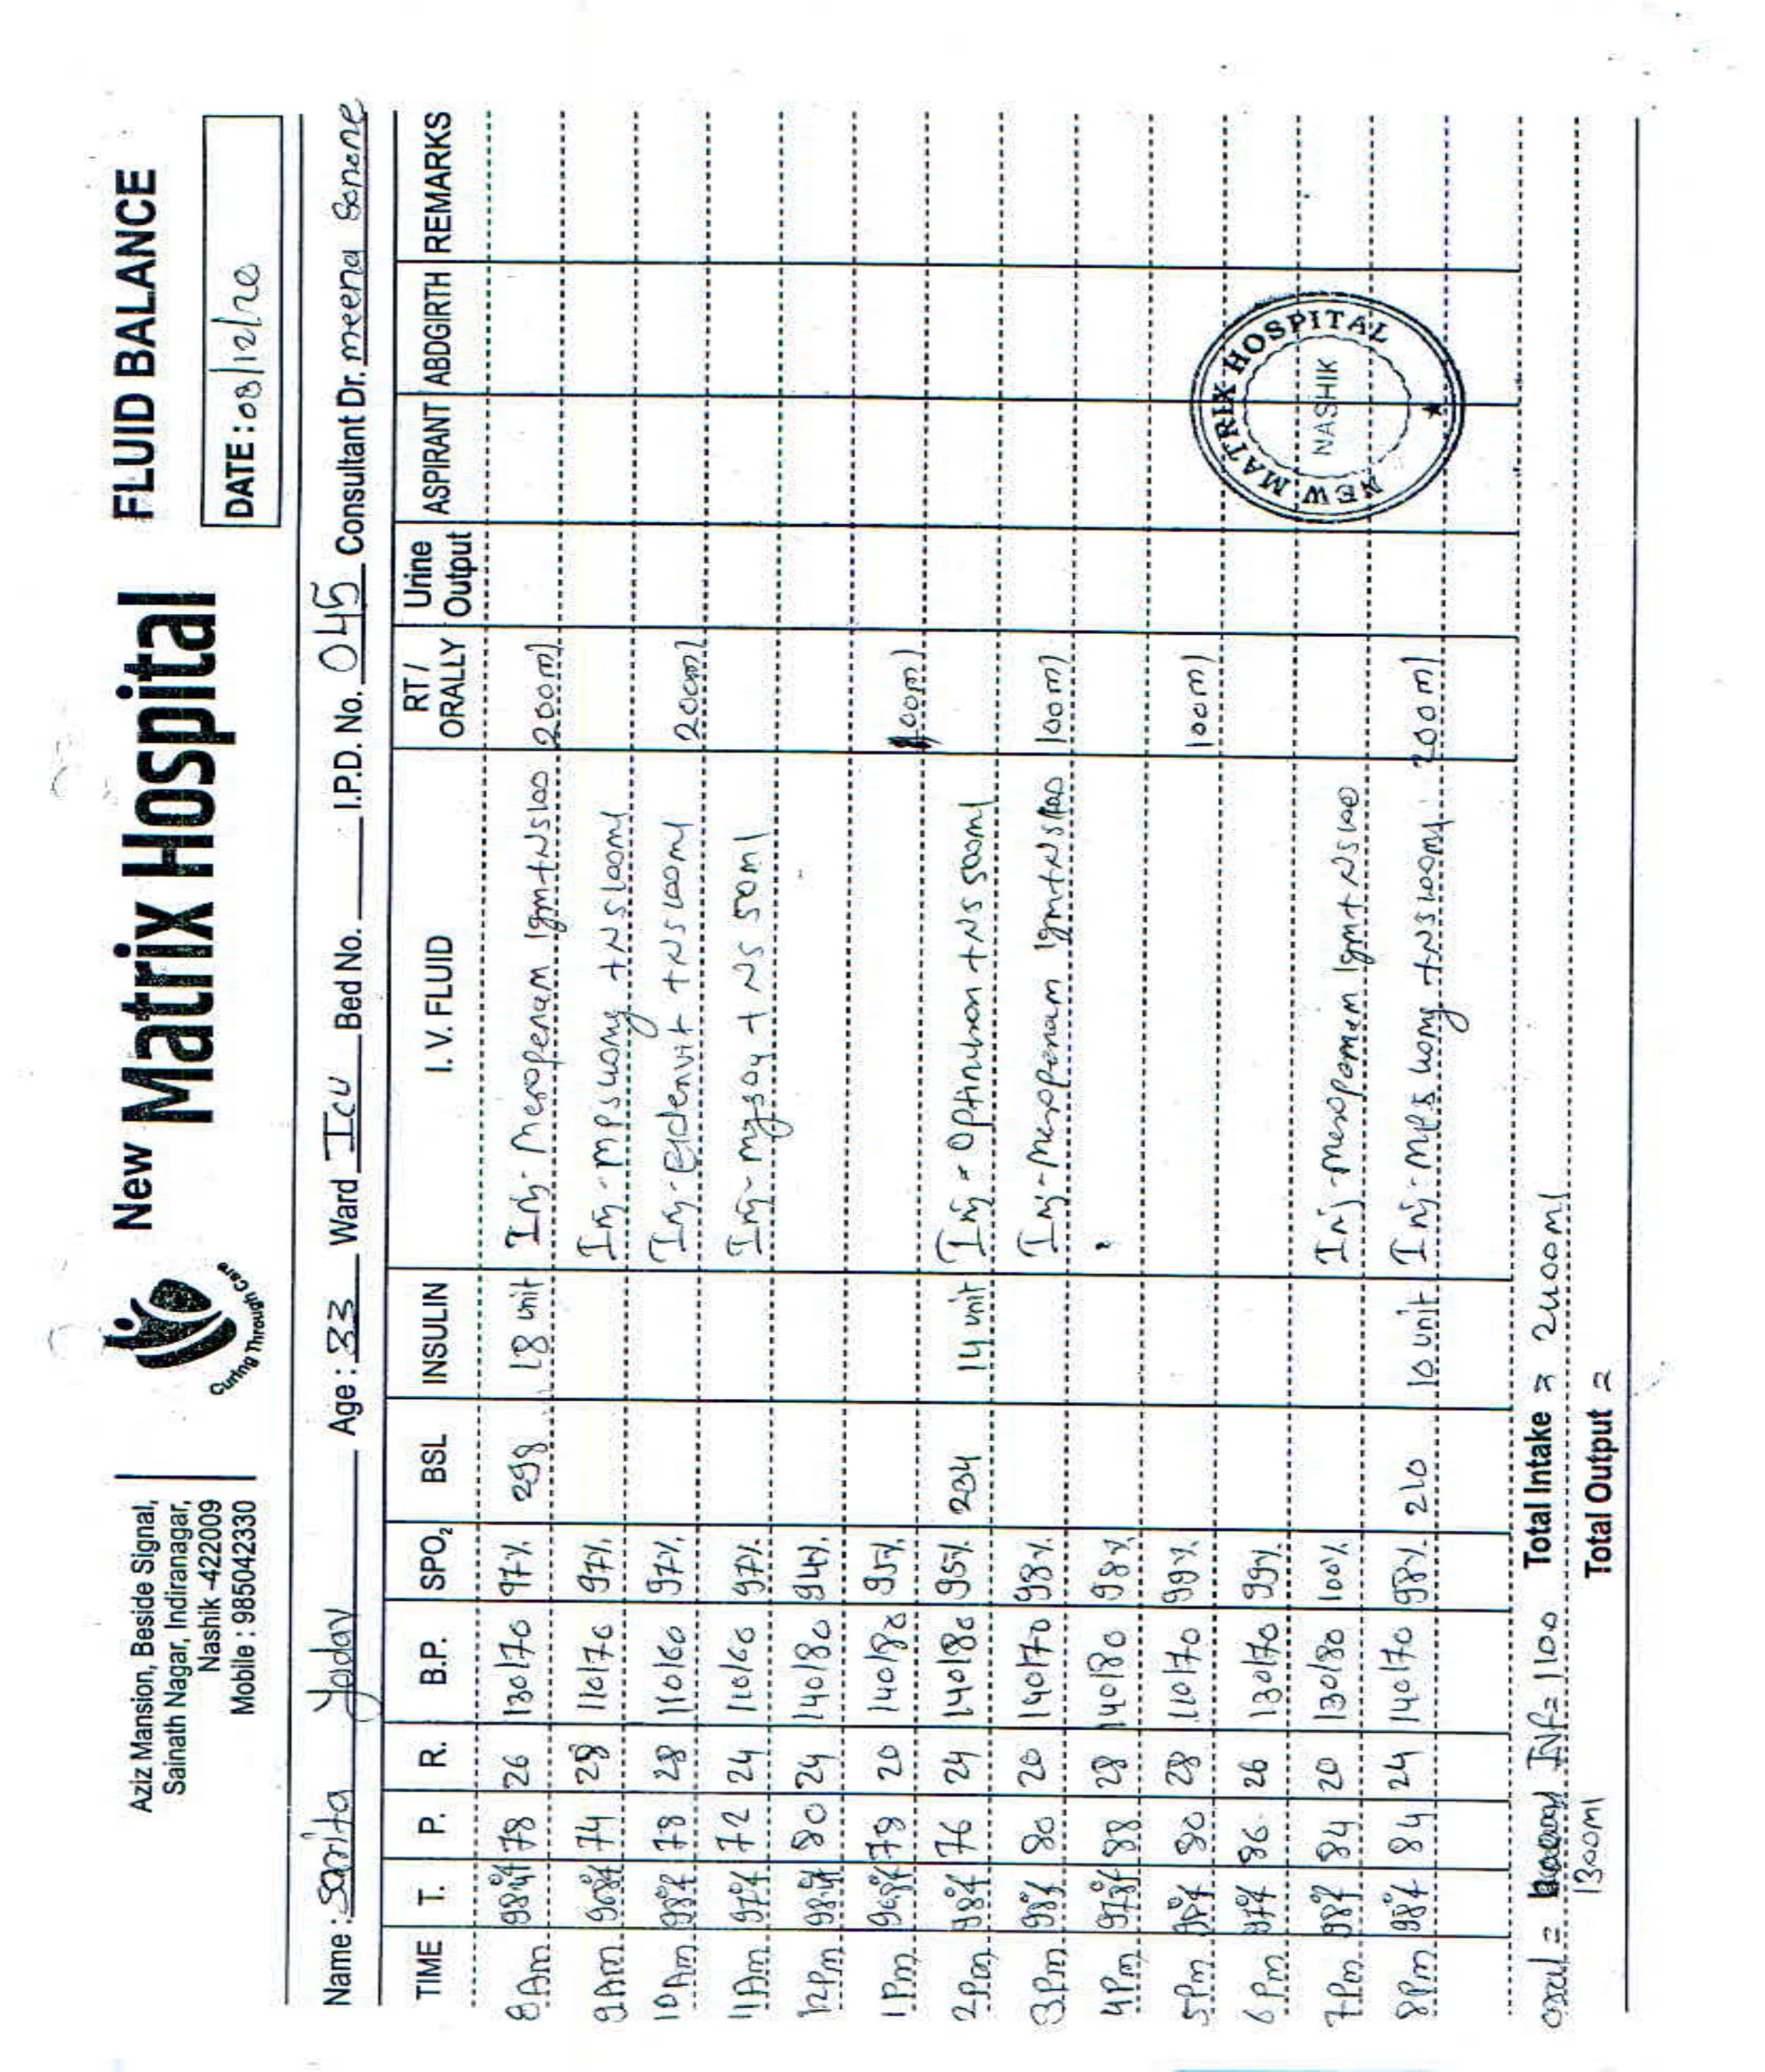 Aziz Mansion, Beside Signal,
Sainath Nagar, Indiranagar,
Nashik -422009
Mobile : 9850423330
Curing Through Care
New Matrix Hospital
FLUID BALANCE
DATE : 08/12/20
Name : Sarita Yadav Age : 33 Ward ICU Bed No. I.P.D. No. 045 Consultant Dr. meena Sonone
TIME T. P. R. B.P. SPO2 BSL INSULIN I. V. FLUID RT / ORALLY Urine Output ASPIRANT ABDGIRTH REMARKS
8 Am 98.4°f 78 26 130/70 97% 298 18 unit Inj- Meropenam 1gm+NS100 200ml
9 Am 74 28 110/70 97% Inj- MPS 40mg +NS 100ml
10 Am 98°f 78 28 110/60 97% +NS 100ml 200ml
11 Am 97°f 72 24 110/60 97% + NS 50ml
12 Pm 98.4°f 80 24 140/80 94%
1 Pm 78 20 140/80 95% 00ml
2 Pm 98°f 76 24 140/80 95% 234 14 unit Inj- Optinuron +NS 500ml
3 Pm 98°f 80 20 140/70 98% Inj-Meropenam 1gm+NS100 100ml
4 Pm 88 28 140/80 98%
5 Pm 98°f 80 28 110/70 99% 100ml
6 Pm 97°f 86 26 130/70 99%
7 Pm 98°f 84 20 130/80 100% Inj-Meropamem 1gm+NS100
8 Pm 98°f 84 24 140/70 98% 210 10 unit Inj- MPS 40mg +NS100ml 200ml
NEW MATRIX HOSPITAL
NASHIK
oral = INF= 1100 Total Intake = 2400ml
1300ml Total Output =